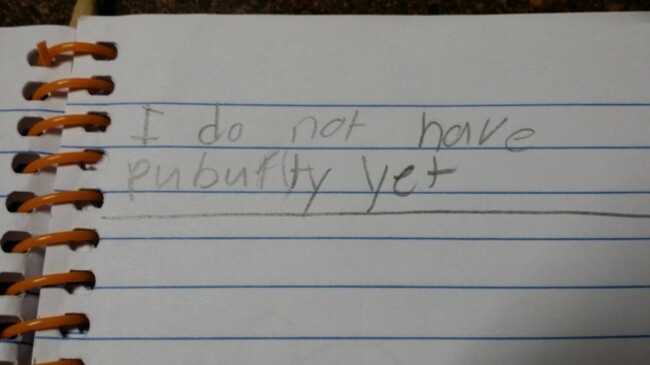 I do not have
puburty yet